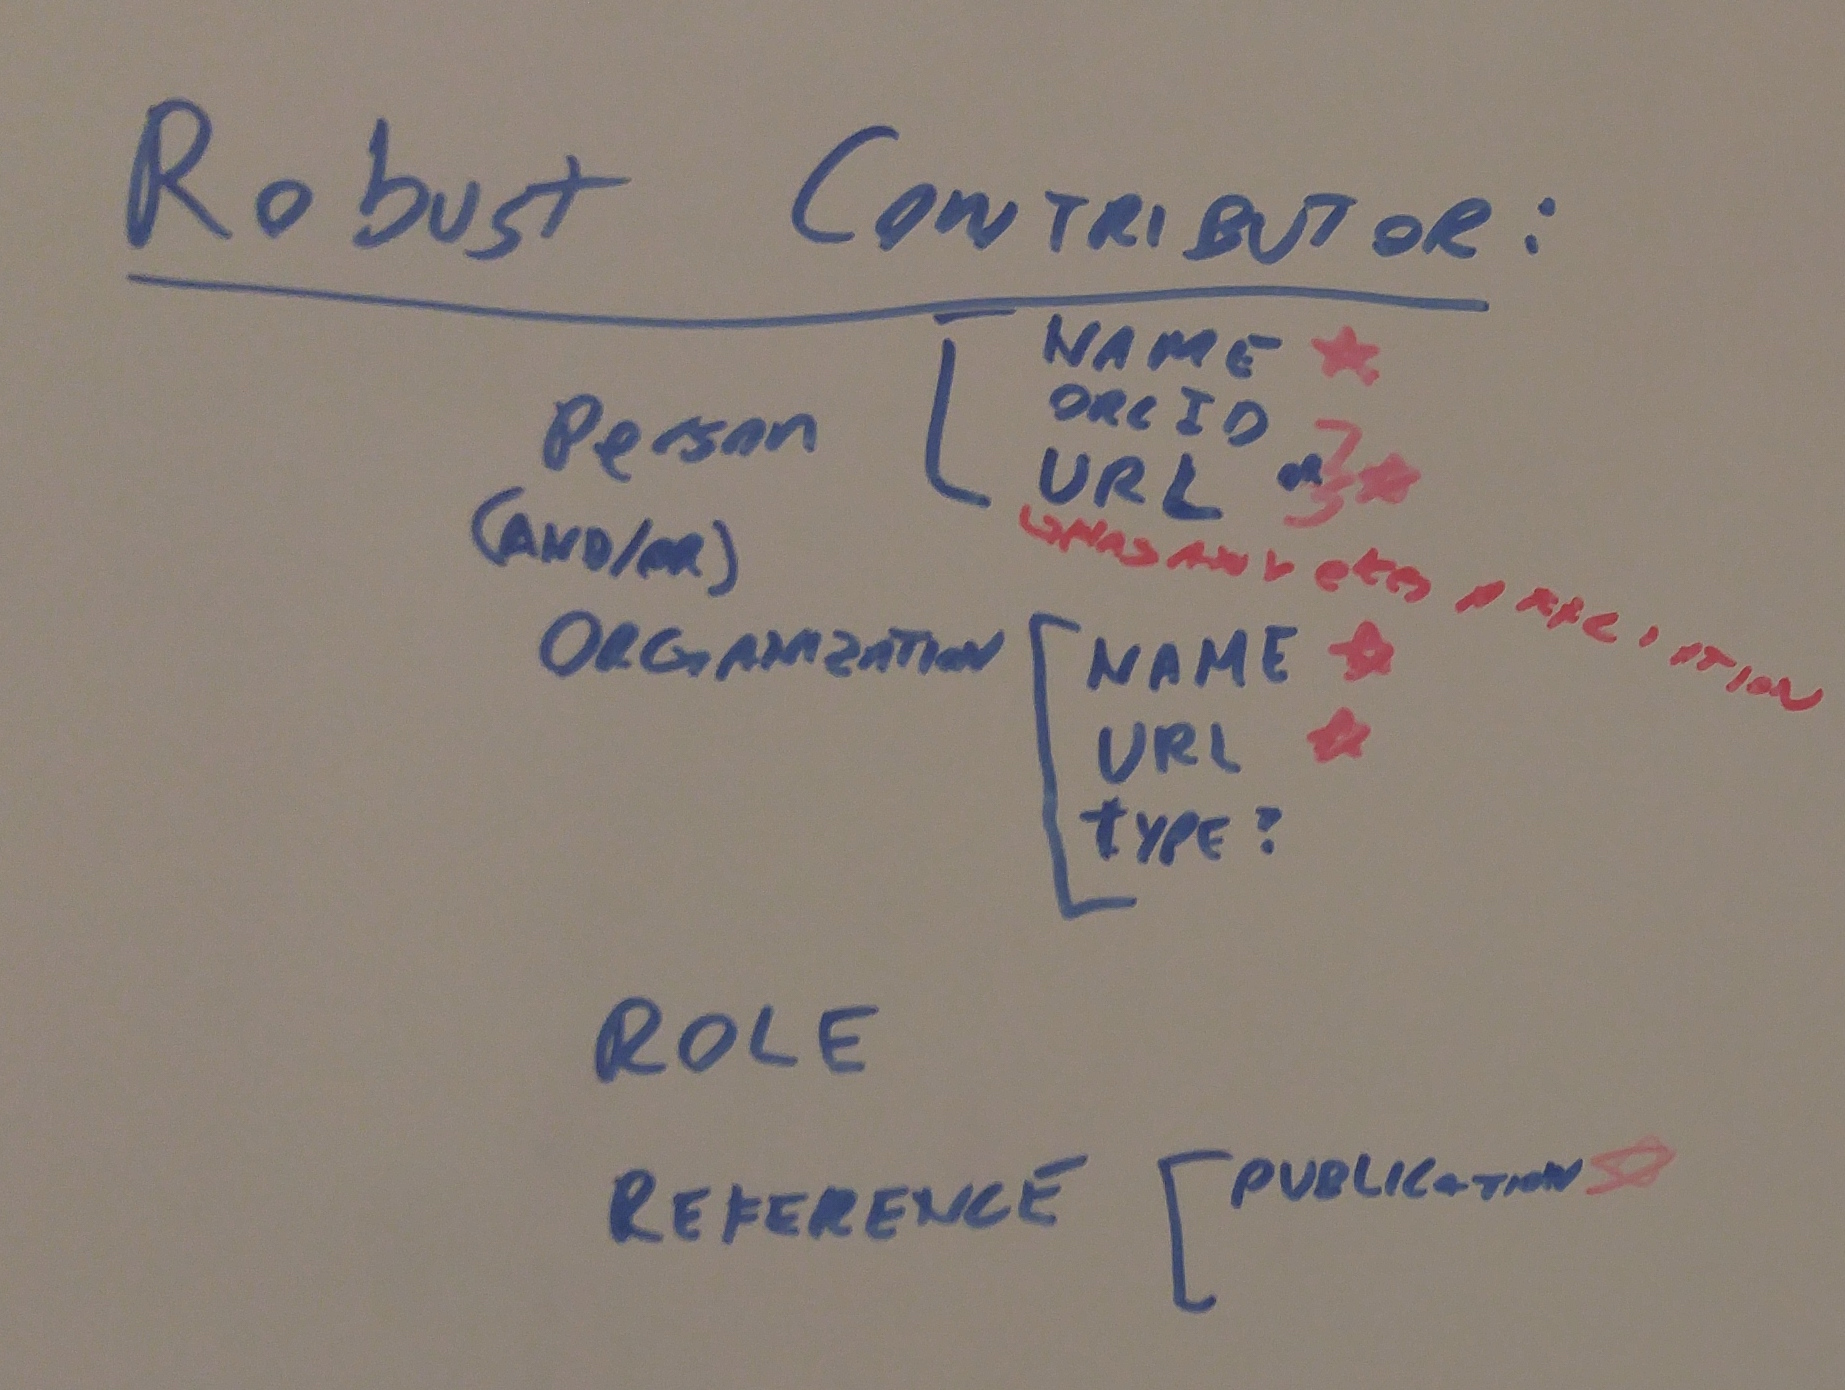 Robust Contributor:
NAME
ORCID
Person
URL or
(AND/OR)
ORGANIZATION
NAME
URL
TYPE?
ROLE
REFERENCE
PUBLICATION